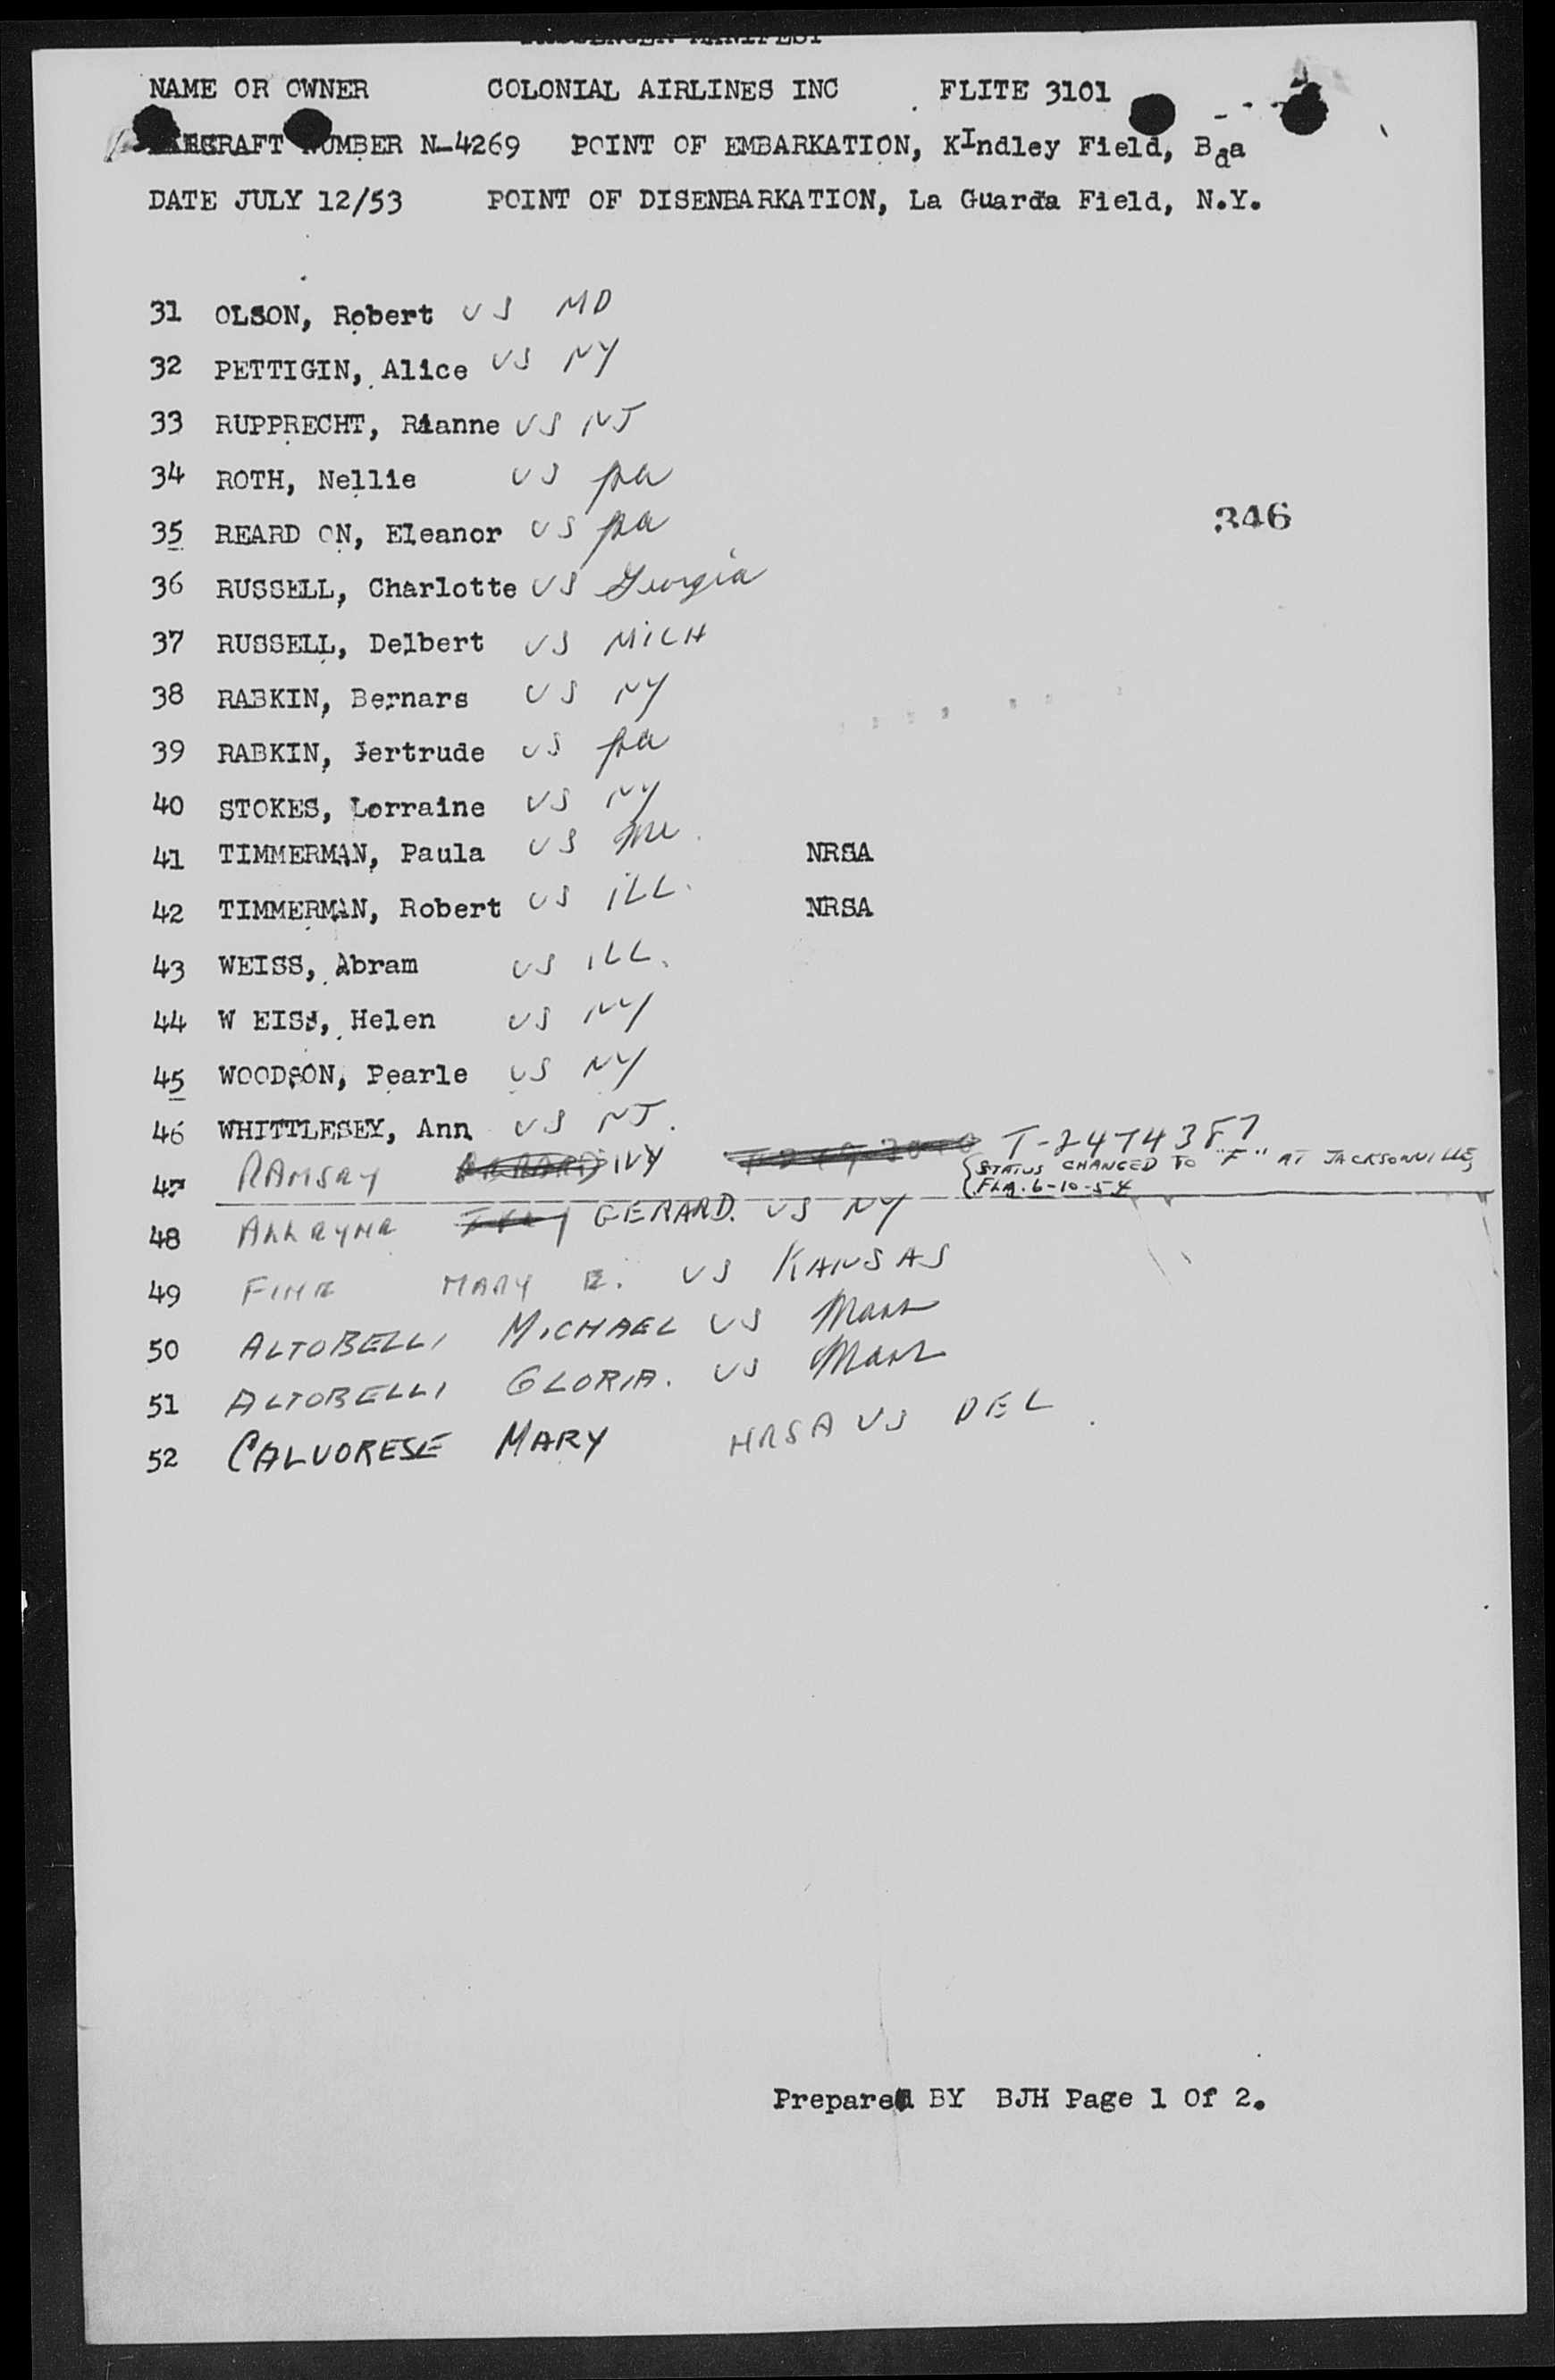 PASSENGER MANIFEST
NAME OR OWNER COLONIAL AIRLINES INC FLITE 3101
AIRCRAFT NUMBER N-4269 POINT OF EMBARKATION, KIndley Field, Bda
DATE JULY 12/53 POINT OF DISENBARKATION, La Guarda Field, N.Y.
31 OLSON, Robert US MD
32 PETTIGIN, Alice US NY
33 RUPPRECHT, Rianne US NJ
34 ROTH, Nellie US pa
346
35 REARD ON, Eleanor US pa
36 RUSSELL, Charlotte US Georgia
37 RUSSELL, Delbert US MICH
38 RABKIN, Bernars US NY
39 RABKIN, Gertrude US pa
40 STOKES, Lorraine US NY
41 TIMMERMAN, Paula US Me. NRSA
42 TIMMERMAN, Robert US ILL. NRSA
43 WEISS, Abram US ILL.
44 W EISS, Helen US NY
45 WOODSON, Pearle US NY
46 WHITTLESEY, Ann US NJ.
47 RAMSAY IVY T-2474387
STATUS CHANGED TO "F" AT JACKSONVILLE,
FLA. 6-10-54
48 GERARD. US NY
49 FINE MARY E. US KANSAS
50 ALTOBELLI MICHAEL US Mass
51 ALTOBELLI GLORIA. US Mass
52 CALVORESE MARY NRSA US DEL.
Prepared BY BJH Page 1 Of 2.